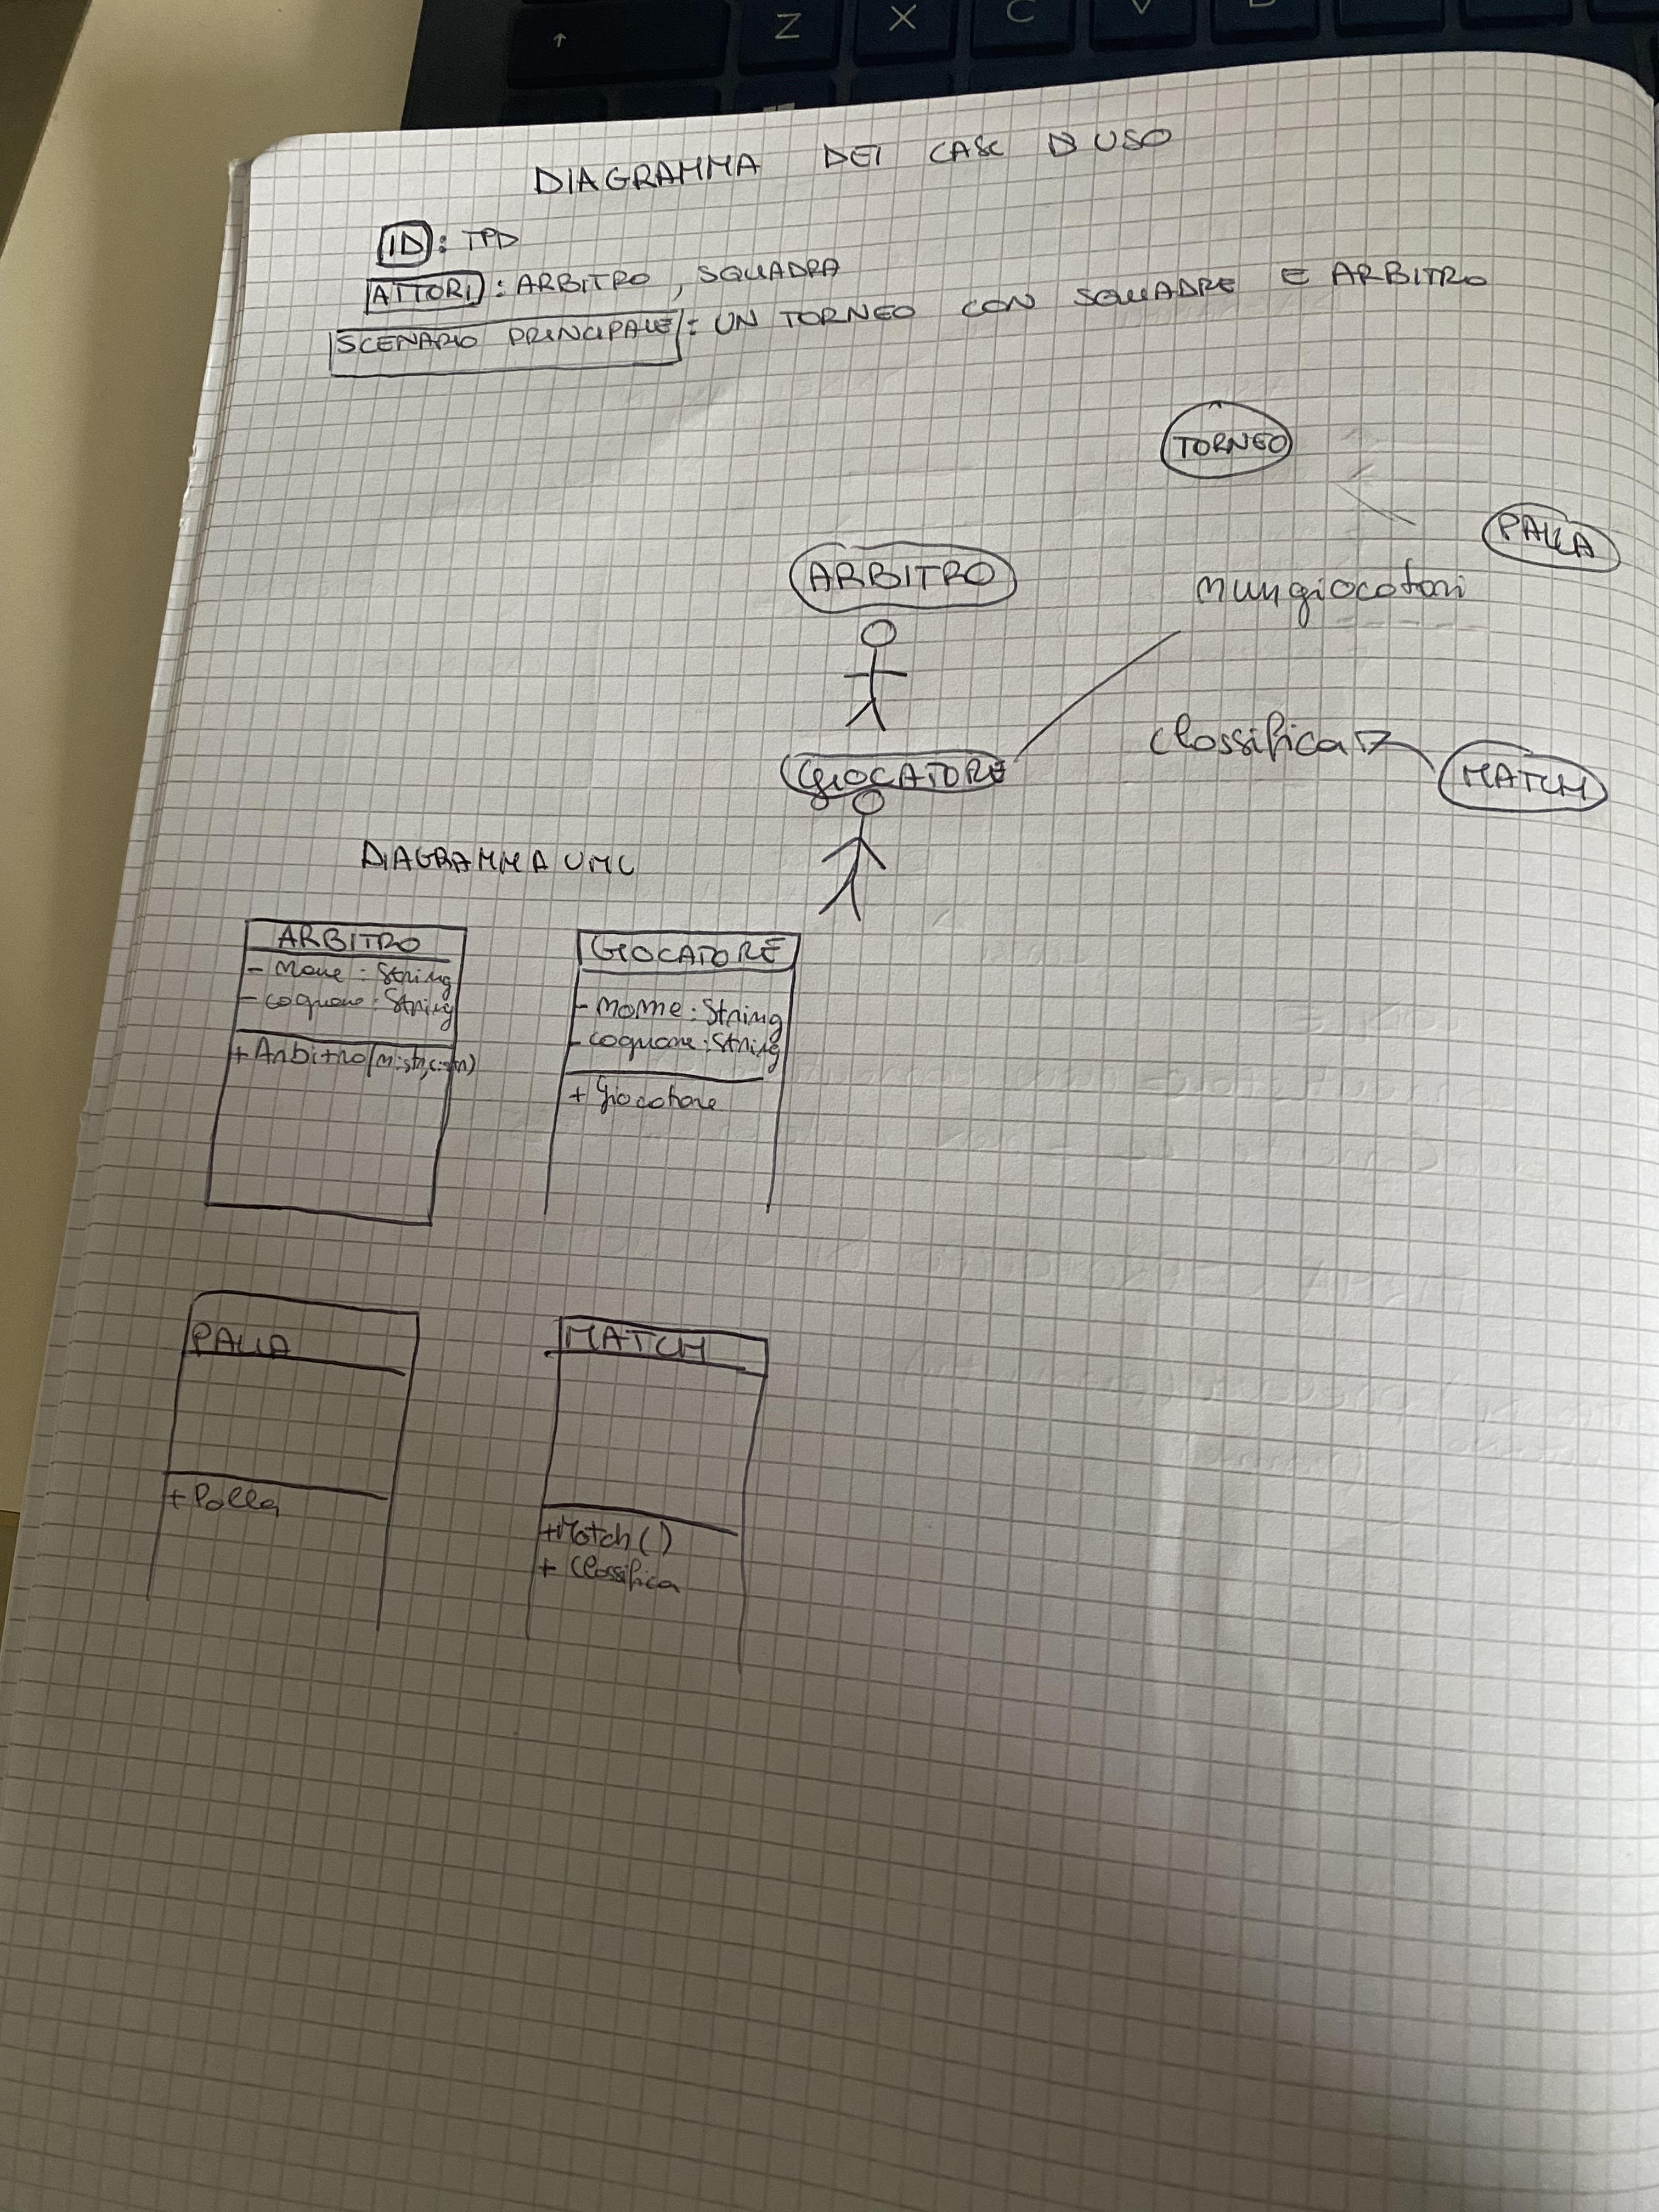 Z X C V B
DIAGRAMMA DEI CASE D USO
ID: TPD
ATTORI: ARBITRO, SQUADRA
SCENARIO PRINCIPALE: UN TORNEO CON SQUADRE E ARBITRO
TORNEO
PALLA
ARBITRO
numgiocatori
GIOCATORE
classifica
MATCH
DIAGRAMMA UML
ARBITRO
- Nome: String
- cognome: String
+ Arbitro(n:str,c:str)
GIOCATORE
- nome: String
- cognome: String
+ Giocatore
PALLA
+ Palla
MATCH
+Match()
+ Classifica